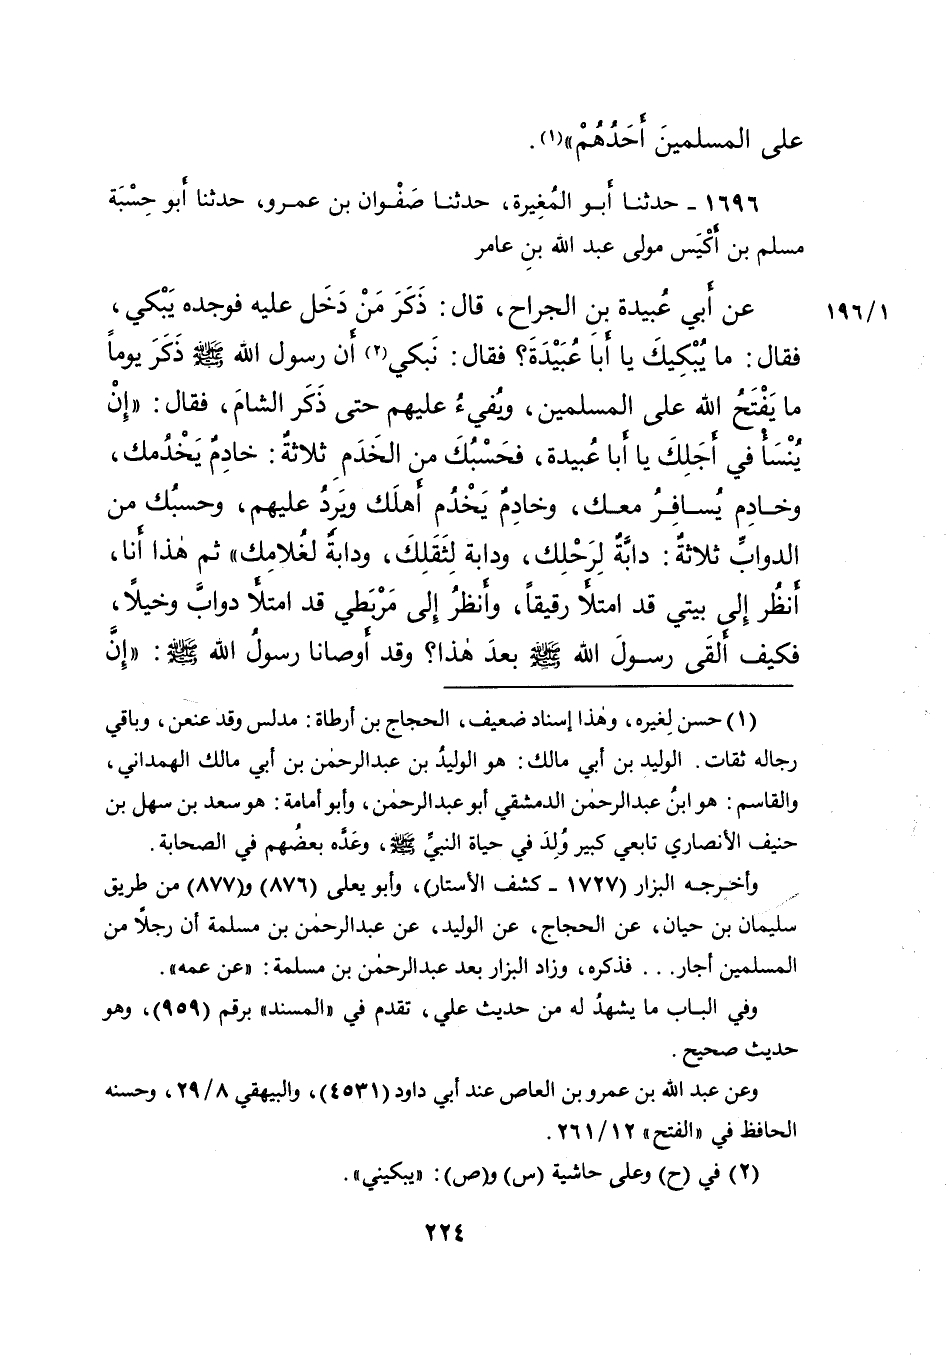 على المسلمينَ أَحَدُهُمْ»(١).
١٦٩٦ ـ حدثنا أبو المُغِيرة، حدثنا صَفْوان بن عمرو، حدثنا أبو حِسْبَة
مسلم بن أُكَيْس مولى عبد الله بنِ عامر
عن أبي عُبيدة بن الجراح، قال: ذَكَرَ مَنْ دَخَل عليه فوجده يَبْكي، ١٩٦/١
فقال: ما يُبْكِيكَ يا أَبا عُبَيْدَة؟ فقال: نَبكي(٢) أن رسول الله ﷺ ذَكَرَ يوماً
ما يَفْتَحُ الله على المسلمين، ويُفيءُ عليهم حتى ذَكَر الشامَ، فقال: «إِنْ
يُنْسَأْ في أَجَلِكَ يا أبا عُبيدة، فحَسْبُكَ من الخَدَمِ ثلاثةٌ: خادِمٌ يَخْدُمك،
وخادِم يُسافِرُ معك، وخادِمٌ يَخْدُم أهلَك ويَرِدُ عليهم، وحسبُك من
الدوابِّ ثلاثةٌ: دابَّةٌ لِرَحْلِك، ودابة لِثَقَلِكَ، ودابةٌ لغُلامِك» ثم هٰذا أنا،
أنظُر إلى بيتي قد امتلأَ رقيقاً، وأَنظرُ إلى مَرْبَطي قد امتلأَ دوابَّ وخيلًا،
فكيف أَلقَى رسولَ الله ﷺ بعدَ هٰذا؟ وقد أَوصانا رسولُ الله ﷺ: «إنَّ
(١) حسن لغيره، وهٰذا إسناد ضعيف، الحجاج بن أرطاة: مدلس وقد عنعن، وباقي
رجاله ثقات. الوليد بن أبي مالك: هو الوليدُ بن عبدالرحمٰن بن أبي مالك الهمداني،
والقاسم: هو ابنُ عبدالرحمٰن الدمشقي أبو عبدالرحمٰن، وأبو أمامة: هو سعد بن سهل بن
حنيف الأنصاري تابعي كبير وُلِدَ في حياة النبيِّ ﷺ، وعَدَّه بعضُهم في الصحابة.
وأخرجه البزار (١٧٢٧ ـ كشف الأستار)، وأبو يعلى (٨٧٦) و(٨٧٧) من طريق
سليمان بن حيان، عن الحجاج، عن الوليد، عن عبدالرحمٰن بن مسلمة أن رجلًا من
المسلمين أجار... فذكره، وزاد البزار بعد عبدالرحمٰن بن مسلمة: «عن عمه».
وفي الباب ما يشهدُ له من حديث علي، تقدم في «المسند» برقم (٩٥٩)، وهو
حديث صحيح.
وعن عبد الله بن عمرو بن العاص عند أبي داود (٤٥٣١)، والبيهقي ٢٩/٨، وحسنه
الحافظ في «الفتح» ٢٦١/١٢.
(٢) في (ح) وعلى حاشية (س) و(ص): «يبكيني».
٢٢٤